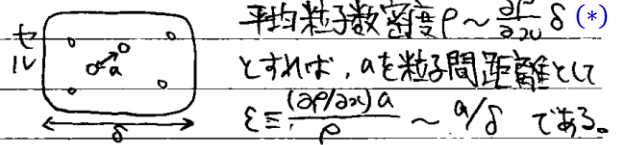 セル
a
δ
平均粒子数密度 ρ ~ ∂ρ/∂x δ (*)
とすれば、aを粒子間距離として
ε ≡ (∂ρ/∂x)a / ρ ~ a/δ である。